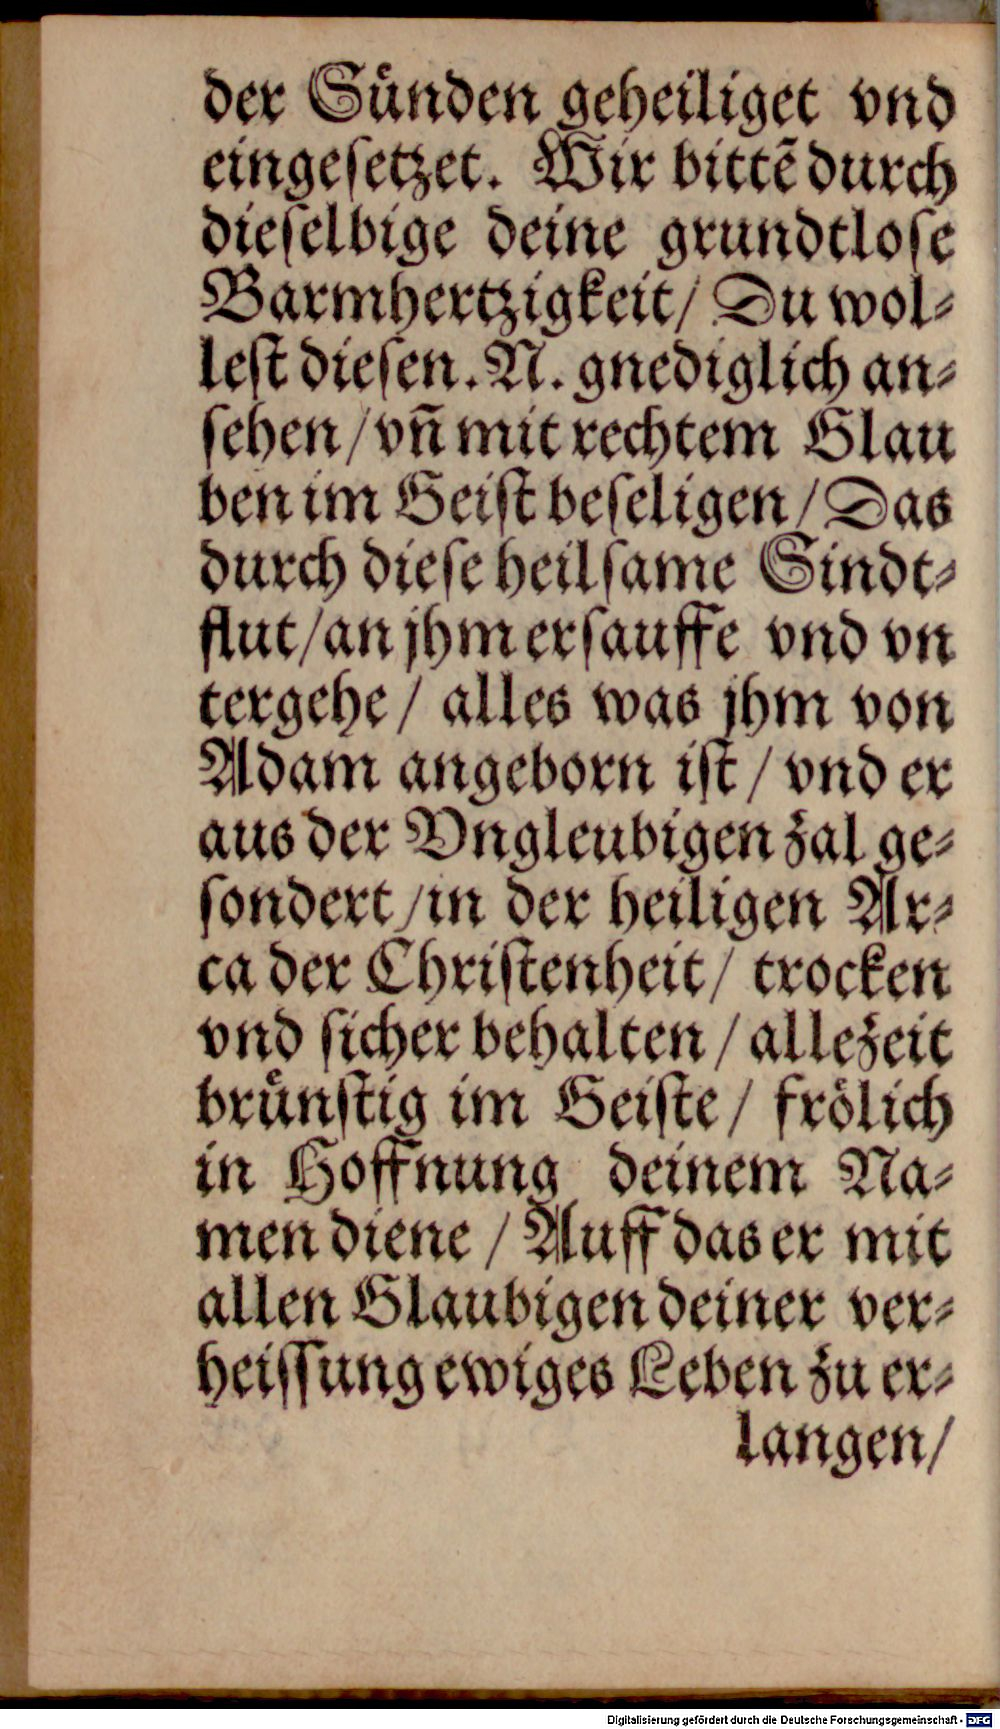 der Sünden geheiliget vnd
eingeſetzet. Wir bittẽ durch
dieſelbige deine grundtloſe
Barmhertzigkeit/ Du wol⸗
leſt dieſen. N. gnediglich an⸗
ſehen/ vñ mit rechtem Glau
ben im Geiſt beſeligen/ Das
durch dieſe heilſame Sindt⸗
flut/ an jhm erſauffe vnd vn
tergehe/ alles was jhm von
Adam angeborn iſt/ vnd er
aus der Vngleubigen zal ge⸗
ſondert/ in der heiligen Ar⸗
ca der Chriſtenheit/ trocken
vnd ſicher behalten/ allezeit
brünſtig im Geiſte/ frölich
in Hoffnung deinem Na⸗
men diene/ Auff das er mit
allen Glaubigen deiner ver⸗
heiſſung ewiges Leben zu er⸗
langen/
Digitalisierung gefördert durch die Deutsche Forschungsgemeinschaft - DFG